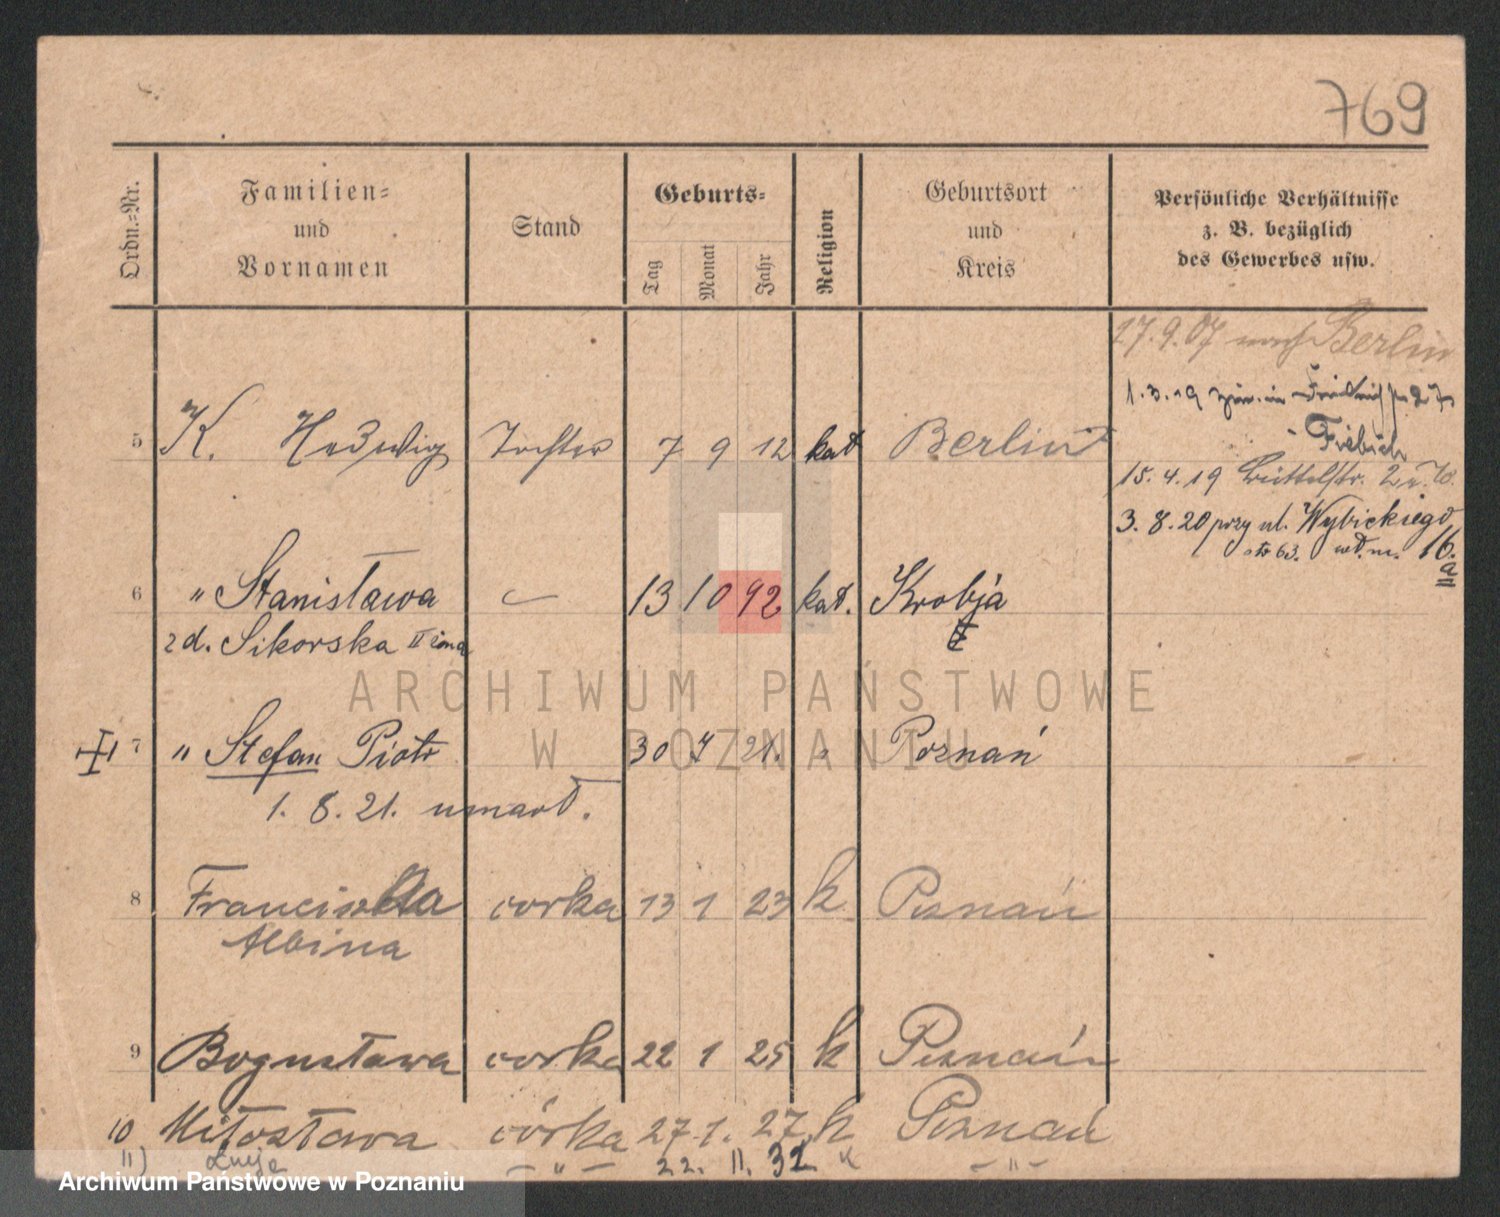 769
Ordn.=Nr.
Familien=
und
Vornamen
Stand
Geburts=
Tag
Monat
Jahr
Religion
Geburtsort
und
Kreis
Persönliche Verhältnisse
z. B. bezüglich
des Gewerbes usw.
27.9.07 nach Berlin
1.3.19
27
5 K. Hedwig Tochter 7 9 12 kat Berlin
15.4.19 2
3.8.20 przy ul. Wybickiego
16. a
6 " Stanisława 13 10 92 kat. Krobja
zd. Sikorska II żona
ARCHIWUM PAŃSTWOWE
W POZNANIU
7 " Stefan Piotr 30 7 21. " Poznań
1. 8. 21. umarł.
8 Franciszka córka 13 1 23 k Poznań
Albina
9 Bogusława córka 22 1 25 k Poznań
10 Miłosława córka 27.1. 27 k Poznań
11) Łucja - " - 22. 11. 32 k - " -
Archiwum Państwowe w Poznaniu